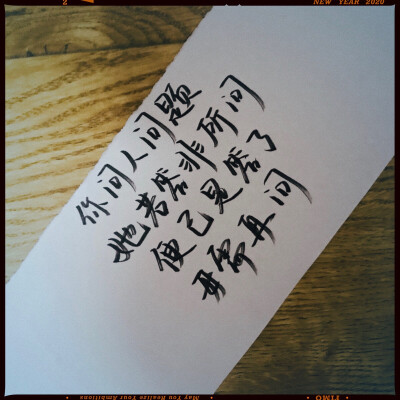 NEW YEAR 2020
你问人问题
她若答非所问
便已是答了
毋需再问
May You Realize Your Ambitions